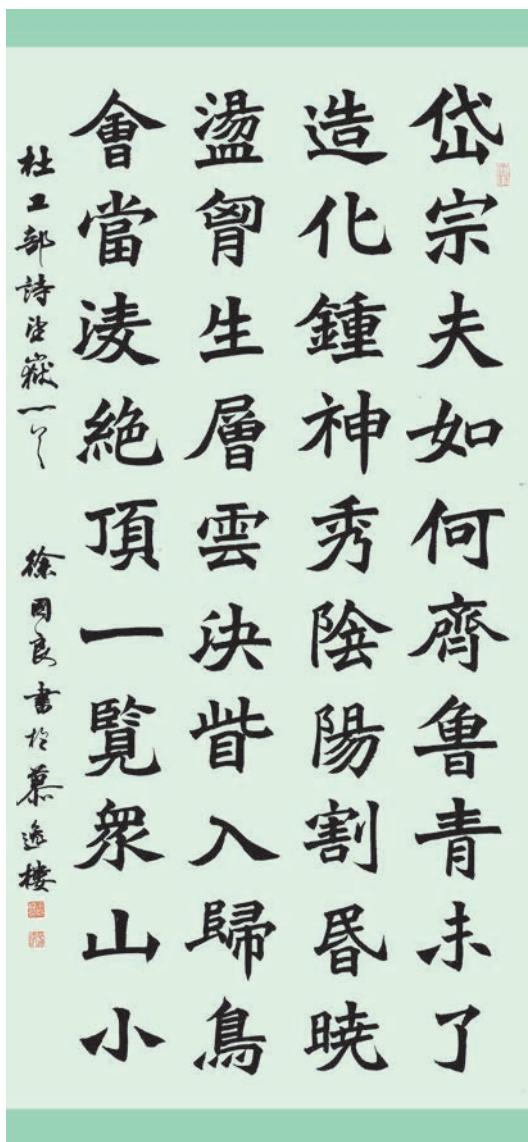 岱宗夫如何齊魯青未了
造化鍾神秀陰陽割昏曉
盪胷生層雲決眥入歸鳥
會當淩絕頂一覽衆山小
杜工部詩望嶽一首 徐國良書於慕逸樓